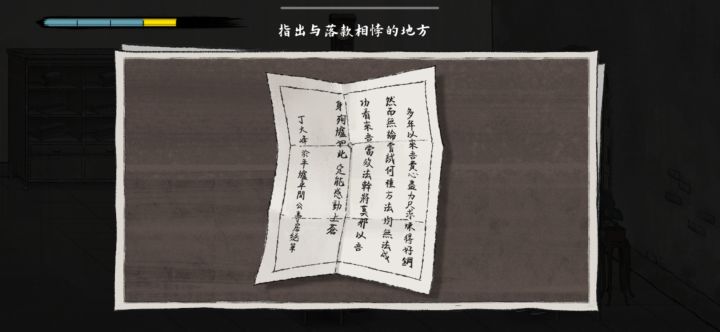 指出与落款相悖的地方
多年以來吾費心盡力只求煉得好鋼
然而無論嘗試何種方法均無法成
功看來吾當效法幹將莫邪以吾
身殉爐如此定能感動上蒼
丁大峰於平爐車間公事房絕筆